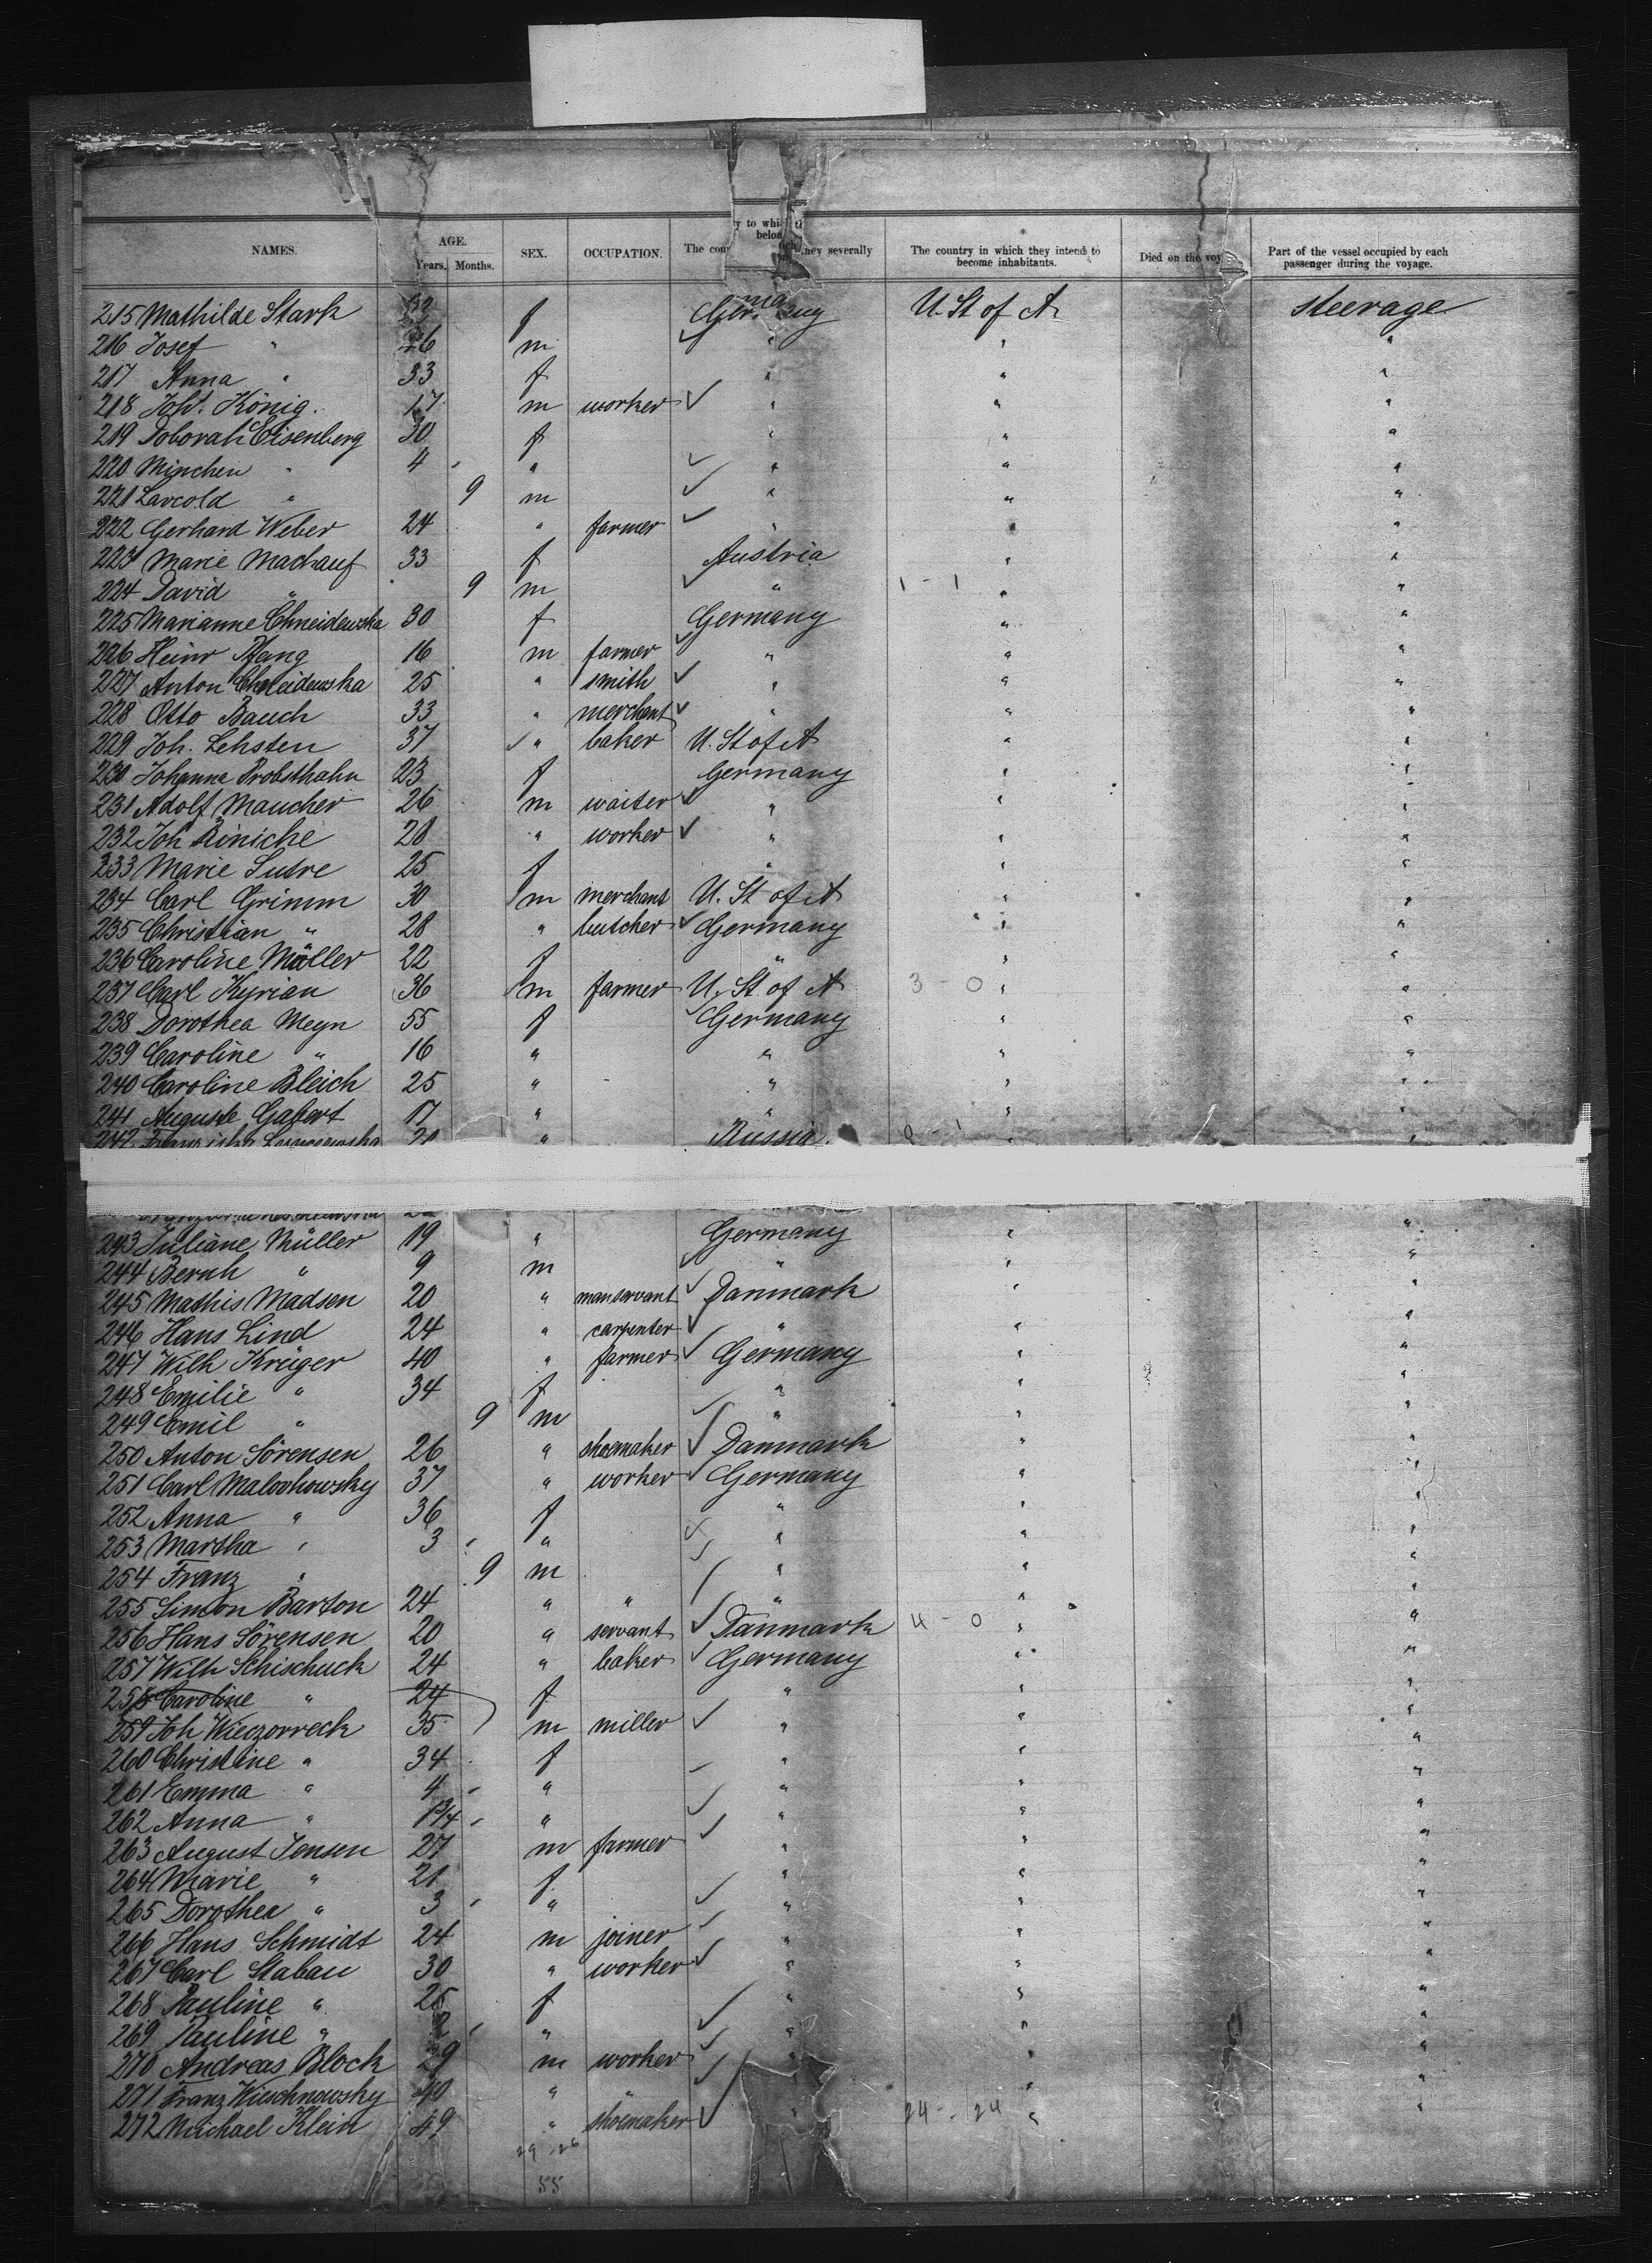 NAMES. AGE. SEX. OCCUPATION. The country to which they severally belong. The country in which they intend to become inhabitants. Died on the voyage. Part of the vessel occupied by each passenger during the voyage.
Years. Months.
215 Mathilde Stark f Germany U. St of A. steerage
216 Josef " 26 m " " "
217 Anna " 33 f " " "
218 Joh. König. 17 m worker ✓ " " "
219 Deborah Eisenberg 30 f " " "
220 Minchen " 4 " ✓ " " "
221 " 9 m ✓ " " "
222 Gerhard Weber 24 " farmer ✓ " " "
223 Marie Machauf 33 f Austria " "
224 David " 9 m ✓ " 1 - 1 " "
225 Marianne Chneidewska 30 f Germany " "
226 Heinr Pfang 16 m farmer ✓ " " "
227 Anton Chneidewska 25 " smith ✓ " " "
228 Otto Bauch 33 " merchant ✓ " " "
229 Joh. Lehsten 37 ✓ " baker U. St of A " "
230 Johanna Probsthahn 23 f Germany " "
231 Adolf Maucher 26 m waiter ✓ " " "
232 Joh Rinicke 28 " worker ✓ " " "
233 Marie 25 f " " "
234 Carl Grimm 30 m merchant U. St of A " "
235 Christian " 28 " butcher ✓ Germany " "
236 Caroline Müller 22 f " " "
237 Carl Kyrian 36 m farmer U. St. of A 3 - 0 " "
238 Dorothea Meyn 55 f Germany " "
239 Caroline " 16 " " " "
240 Caroline Bleich 25 " " " "
241 Auguste Gabert 17 " " " "
242 " Russia. 0 - 1 " "
243 Juliane Müller 19 " Germany " "
244 Bernh " 9 m ✓ " " "
245 Mathis Madsen 20 " manservant ✓ Danmark " "
246 Hans Lind 24 " carpenter ✓ " " "
247 Wilh Krüger 40 " farmer ✓ Germany " "
248 Emilie " 34 f " " "
249 Emil " 9 m ✓ " " "
250 Anton Sörensen 26 " shoemaker ✓ Danmark " "
251 Carl Malochowsky 37 " worker ✓ Germany " "
252 Anna " 36 f " " "
253 Martha " 3 " ✓ " " "
254 Franz " 9 m ✓ " " "
255 Simon Barton 24 " " ✓ " " "
256 Hans Sörensen 20 " servant ✓ Danmark 4 - 0 " "
257 Wilh Schischuck 24 " baker ✓ Germany " "
258 Caroline " 24 f " " "
259 Joh Wieczorreck 35 m miller ✓ " " "
260 Christine " 34 f " " "
261 Emma " 4 " ✓ " " "
262 Anna " 1 3/4 " ✓ " " "
263 August Jensen 27 m farmer ✓ " " "
264 Marie " 21 f " " "
265 Dorothea " 3 " ✓ " " "
266 Hans Schmidt 24 m joiner ✓ " " "
267 Carl Stabau 30 " worker ✓ " " "
268 Pauline " 25 f " " "
269 Pauline " 2 " ✓ " " "
270 Andreas Block 29 m worker ✓ " " "
271 Franz Wischnowsky 40 " " ✓ " " "
272 Michael Klein 49 " shoemaker ✓ " 24 - 24 " "
29 - 26
55